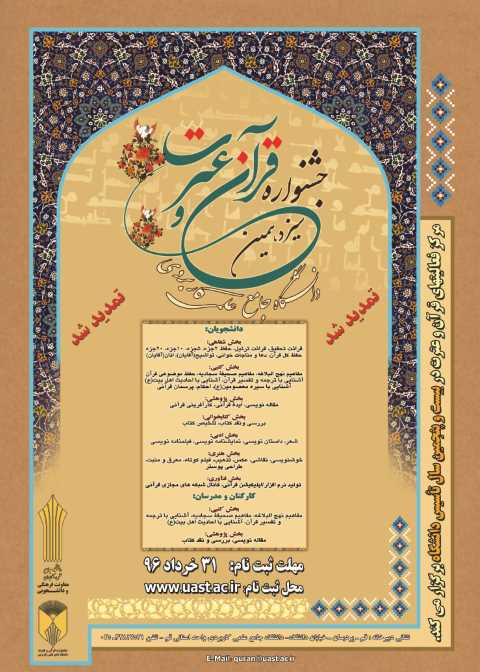 سیزدهمین
جشنواره
قرآن و عترت
دانشگاه جامع علمی کاربردی
تمدید شد
تمدید شد
مرکز فعالیتهای قرآن و عترت در بیست و پنجمین سال تأسیس دانشگاه برگزار می کند.
دانشجویان:
بخش شفاهی:
قرائت تحقیق، قرائت ترتیل، حفظ ۳جزء، ۵جزء، ۱۰جزء، ۲۰جزء
حفظ کل قرآن ،دعا و مناجات خوانی، تواشیح(آقایان)، اذان(آقایان)
بخش کتبی:
مفاهیم نهج البلاغه، مفاهیم صحیفهٔ سجادیه، حفظ موضوعی قرآن
آشنایی با ترجمه و تفسیر قرآن، آشنایی با احادیث اهل بیت(ع)
آشنایی با سیره معصومین(ع)، احکام، پرسمان قرآنی
بخش پژوهشی:
مقاله نویسی، ایده قرآنی، کارآفرینی قرآنی
بخش کتابخوانی:
بررسی و نقد کتاب، تلخیص کتاب
بخش ادبی:
شعر، داستان نویسی، نمایشنامه نویسی، فیلمنامه نویسی
بخش هنری:
خوشنویسی، نقاشی، عکس، تذهیب، فیلم کوتاه، معرق و منبت،
طراحی پوستر
بخش فناوری:
تولید نرم افزار/اپلیکیشن قرآنی، کانال شبکه های مجازی قرآنی
کارکنان و مدرسان:
بخش کتبی:
مفاهیم نهج البلاغه، مفاهیم صحیفهٔ سجادیه، آشنایی با ترجمه
و تفسیر قرآن، آشنایی با احادیث اهل بیت(ع)
بخش پژوهشی:
مقاله نویسی، بررسی و نقد کتاب
مهلت ثبت نام: ۳۱ خرداد ۹۶
محل ثبت نام: www.uast.ac.ir
معاونت فرهنگی
و دانشجویی
نشانی دبیرخانه : قم ـ پردیسان ـ خیابان دانشگاه ـ دانشگاه جامع علمی کاربردی واحد استانی قم ـ تلفن
E.Mail: quran@uast.ac.ir